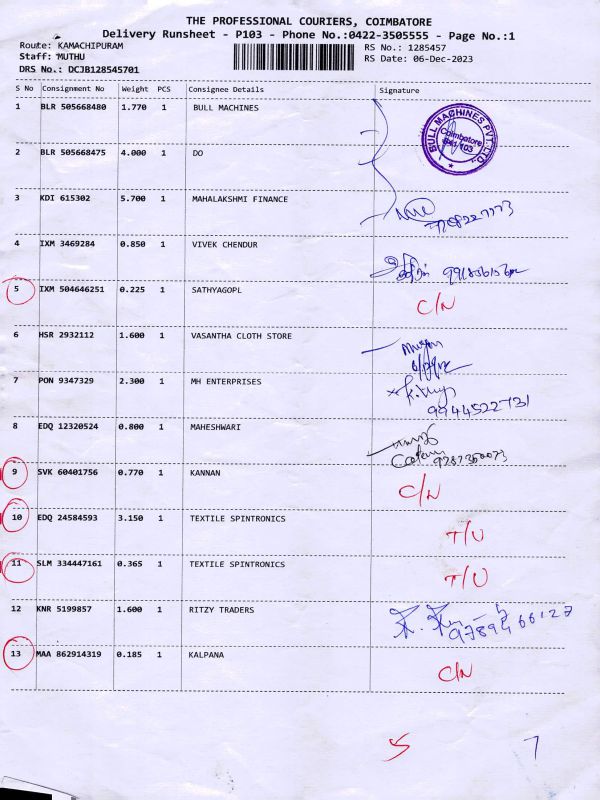 THE PROFESSIONAL COURIERS, COIMBATORE
Delivery Runsheet - P103 - Phone No.:0422-3505555 - Page No.:1
Route: KAMACHIPURAM RS No.: 1285457
Staff: MUTHU RS Date: 06-Dec-2023
DRS No.: DCJB128545701
S No Consignment No Weight PCS Consignee Details Signature
1 BLR 505668480 1.770 1 BULL MACHINES
BULL MACHINES PVT. LTD.
Coimbatore
641 103
2 BLR 505668475 4.000 1 DO
3 KDI 615302 5.700 1 MAHALAKSHMI FINANCE
4 IXM 3469284 0.850 1 VIVEK CHENDUR
5 IXM 504646251 0.225 1 SATHYAGOPL C/N
6 HSR 2932112 1.600 1 VASANTHA CLOTH STORE
7 PON 9347329 2.300 1 MH ENTERPRISES
9944522731
8 EDQ 12320524 0.800 1 MAHESHWARI
9 SVK 60401756 0.770 1 KANNAN C/N
10 EDQ 24584593 3.150 1 TEXTILE SPINTRONICS T/U
11 SLM 334447161 0.365 1 TEXTILE SPINTRONICS T/U
12 KNR 5199857 1.600 1 RITZY TRADERS
13 MAA 862914319 0.185 1 KALPANA C/N
5 7